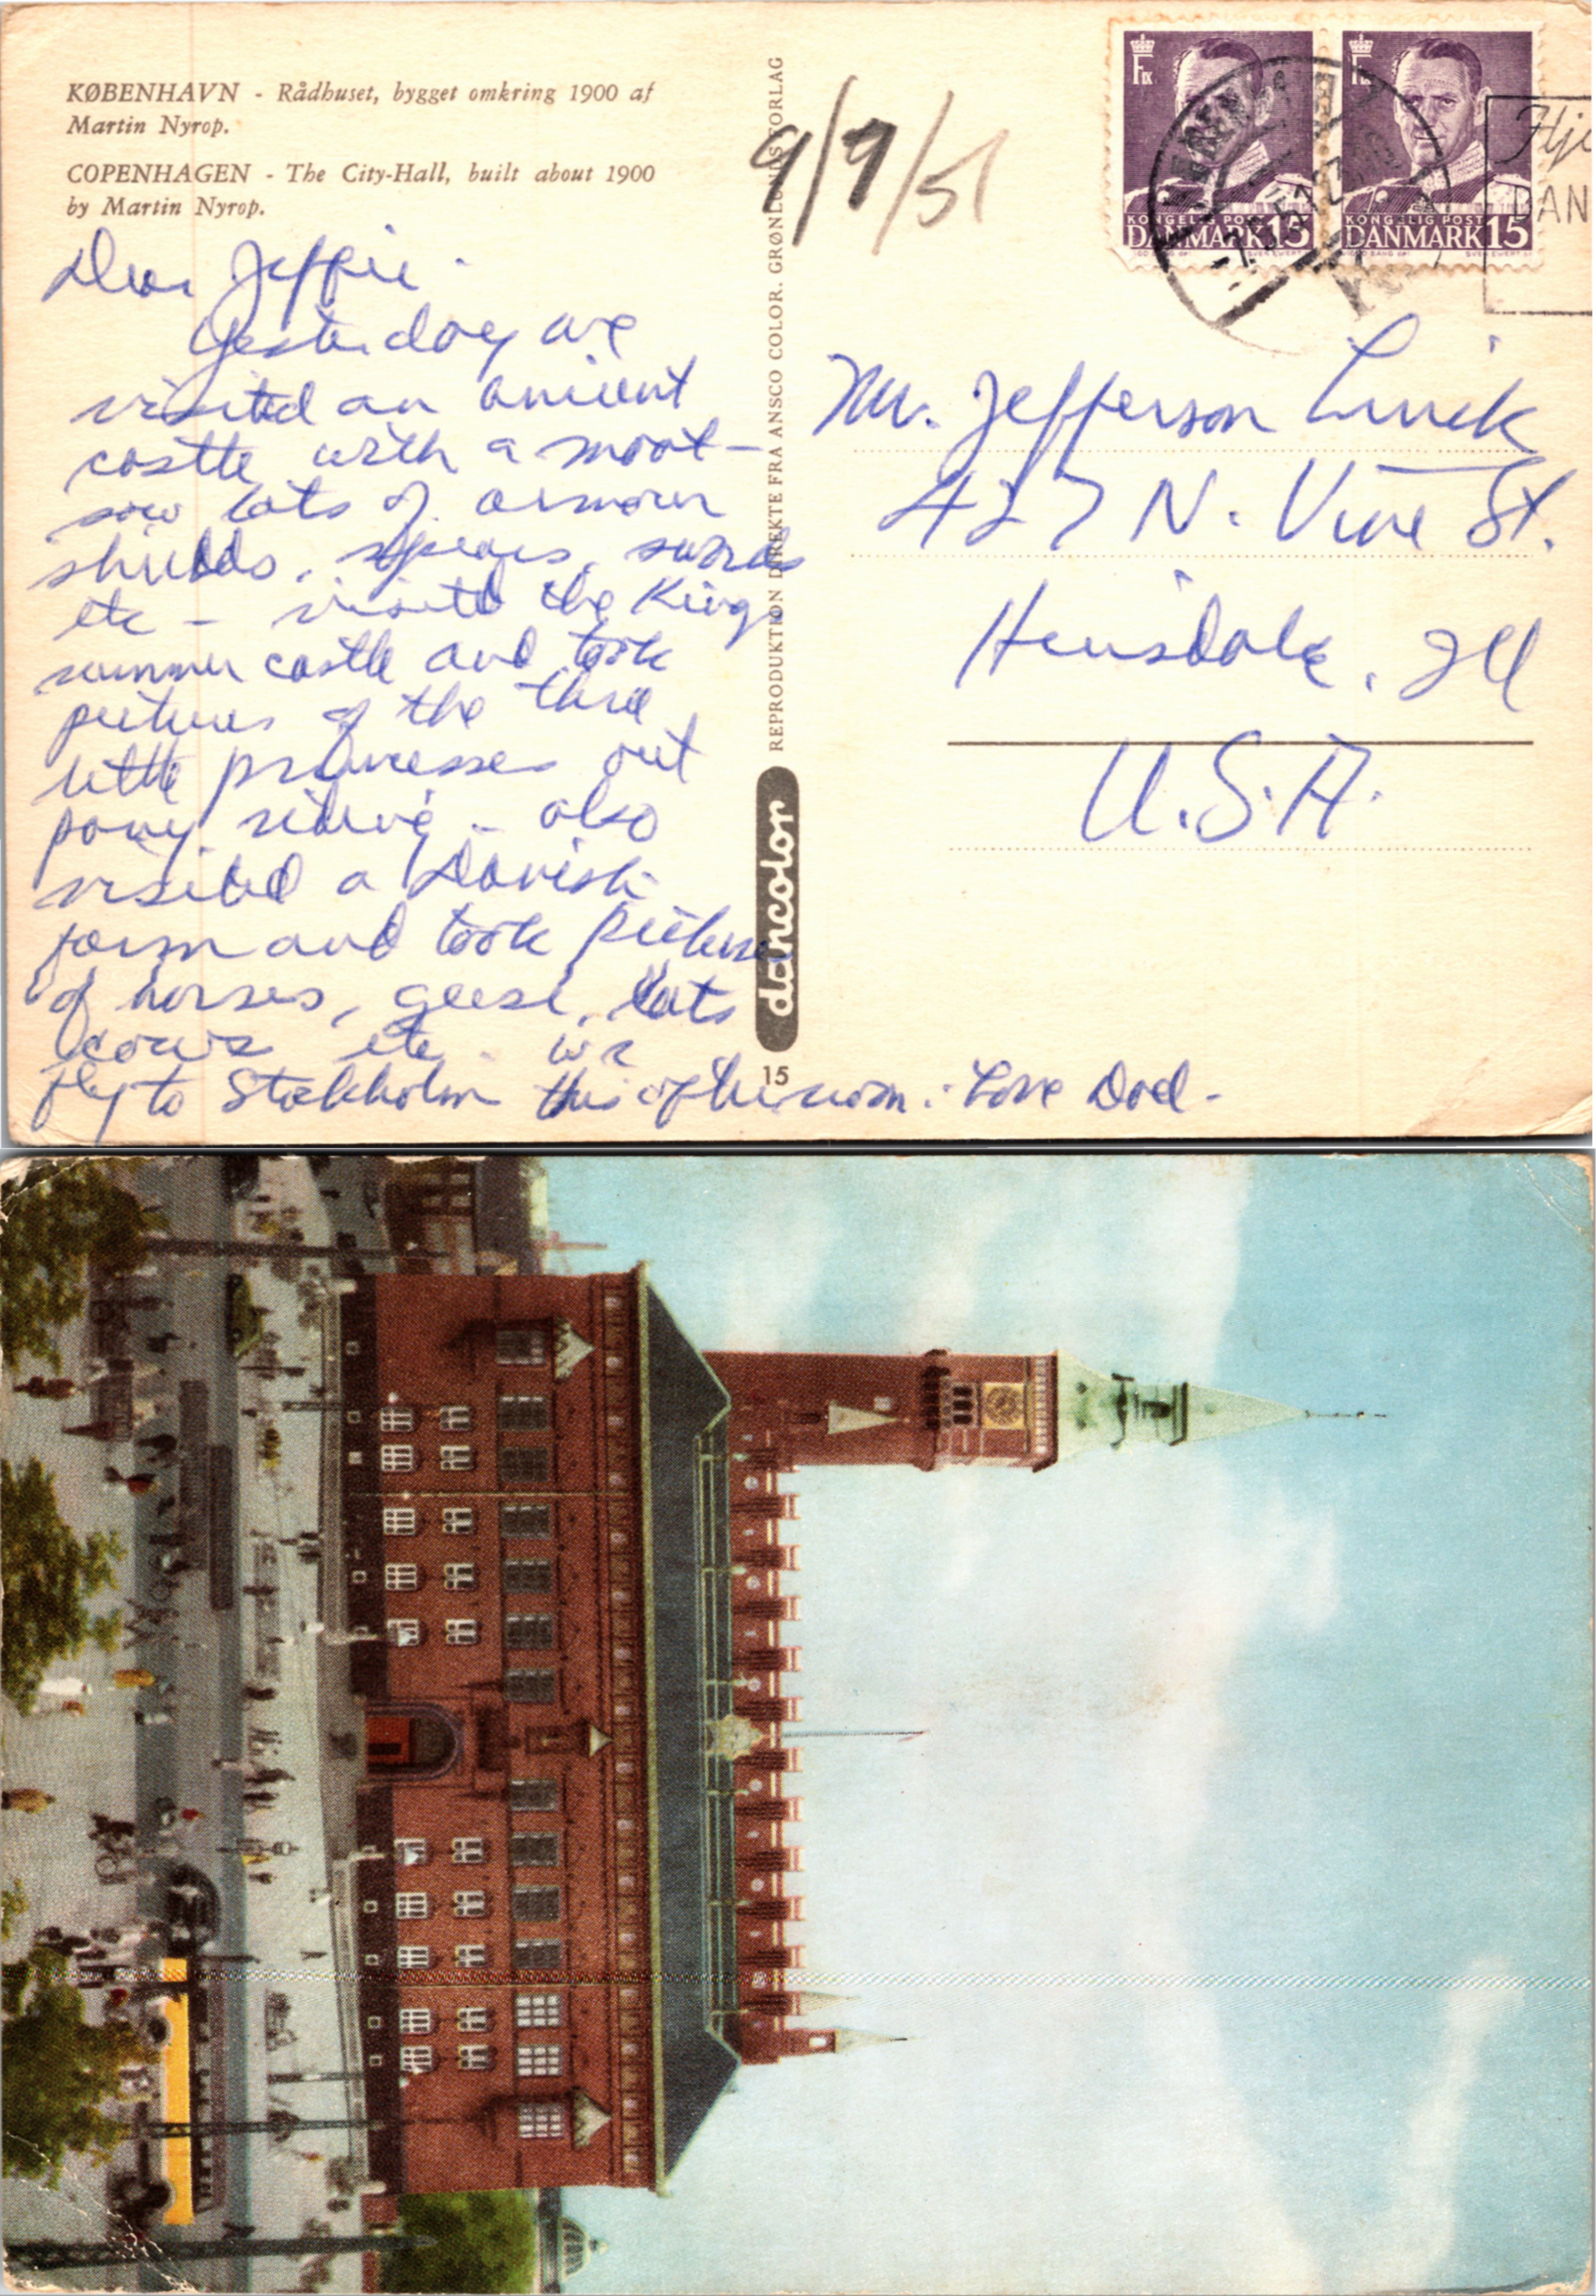 KØBENHAVN - Rådhuset, bygget omkring 1900 af
Martin Nyrop.
COPENHAGEN - The City-Hall, built about 1900
by Martin Nyrop.
Dear Jeffie -
Yesterday we
visited an ancient
castle with a moat -
saw lots of armour
shields, spears, swords
etc - visited the Kings
summer castle and took
pictures of the three
little princesses out
pony riding - also
visited a Danish
farm and took pictures
of horses, geese, cats
cows etc. we
fly to Stockholm this afternoon. Love Dad -
REPRODUKTION DIREKTE FRA ANSCO COLOR. GRØNLUNDS FORLAG
dancolor
15
9/9/51
KONGELIG POST
DANMARK 15
KONGELIG POST
DANMARK 15
DAN
Mr. Jefferson
427 N. Vine St.
Hinsdale, Ill
U.S.A.